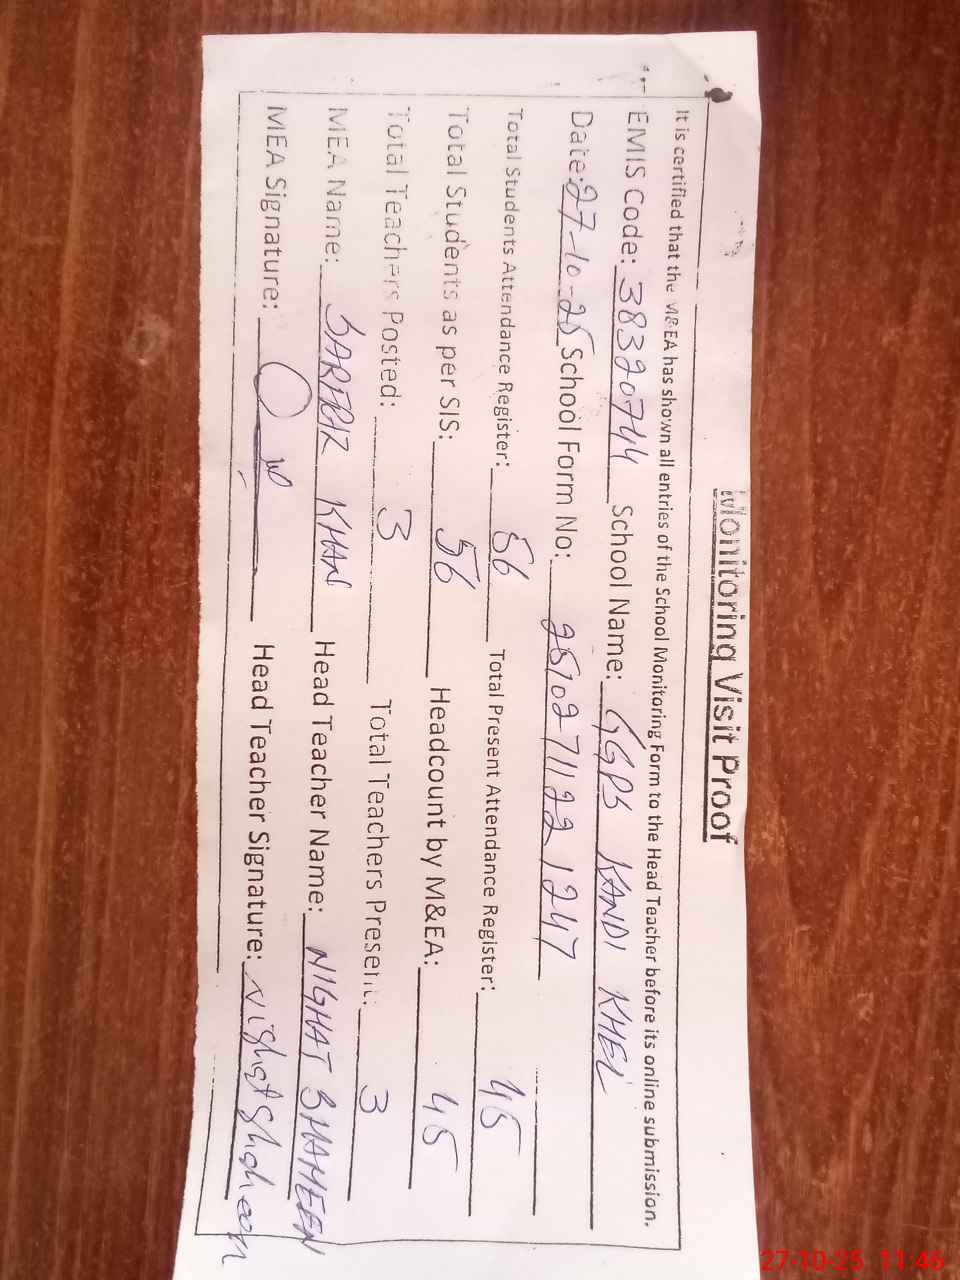 Monitoring Visit Proof
It is certified that the M&EA has shown all entries of the School Monitoring Form to the Head Teacher before its online submission.
EMIS Code: 38320744 School Name: GGPS KANDI KHEL
Date: 27-10-25 School Form No: 25102711221247
Total Students Attendance Register: 56 Total Present Attendance Register: 45
Total Students as per SIS: 56 Headcount by M&EA: 45
Total Teachers Posted: 3 Total Teachers Present: 3
MEA Name: KHAN Head Teacher Name: NIGHAT SHAHEEN
MEA Signature: Head Teacher Signature: Nighat Shaheen
27-10-25 11:46